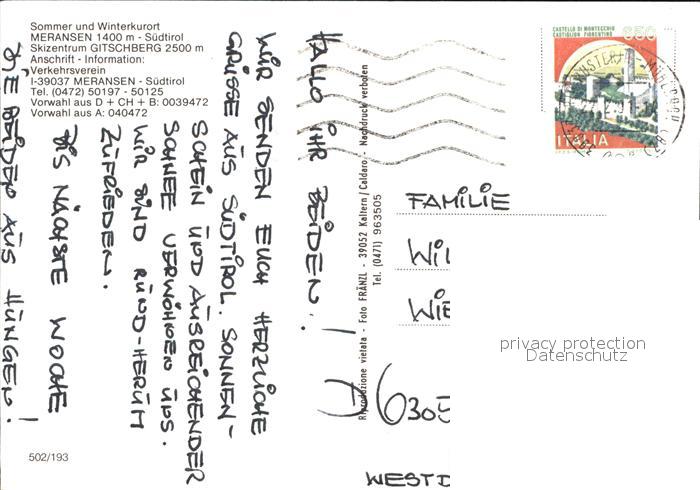 Sommer und Winterkurort
MERANSEN 1400 m - Südtirol
Skizentrum GITSCHBERG 2500 m
Anschrift - Information:
Verkehrsverein
I-39037 MERANSEN - Südtirol
Tel. (0472) 50197 - 50125
Vorwahl aus D + CH + B: 0039472
Vorwahl aus A: 040472
HALLO IHR BEIDEN!
WIR SENDEN EUCH HERZLICHE
GRÜSSE AUS SÜDTIROL. SONNEN-
SCHEIN UND AUSREICHENDER
SCHNEE VERWÖHNEN UNS.
WIR SIND RUND-HERUM
ZUFRIEDEN.
BIS NÄCHSTE WOCHE
DIE BEIDEN AUS HUNGEN!
502/193
Riproduzione vietata - Foto FRÄNZL - 39052 Kaltern / Caldaro - Nachdruck verboten
Tel. (0471) 963505
CASTELLO DI MONTECCHIO
CASTIGLION FIORENTINO
650
ITALIA
FAMILIE
WIL
WIE
A
6305
WESTD
privacy protection
Datenschutz